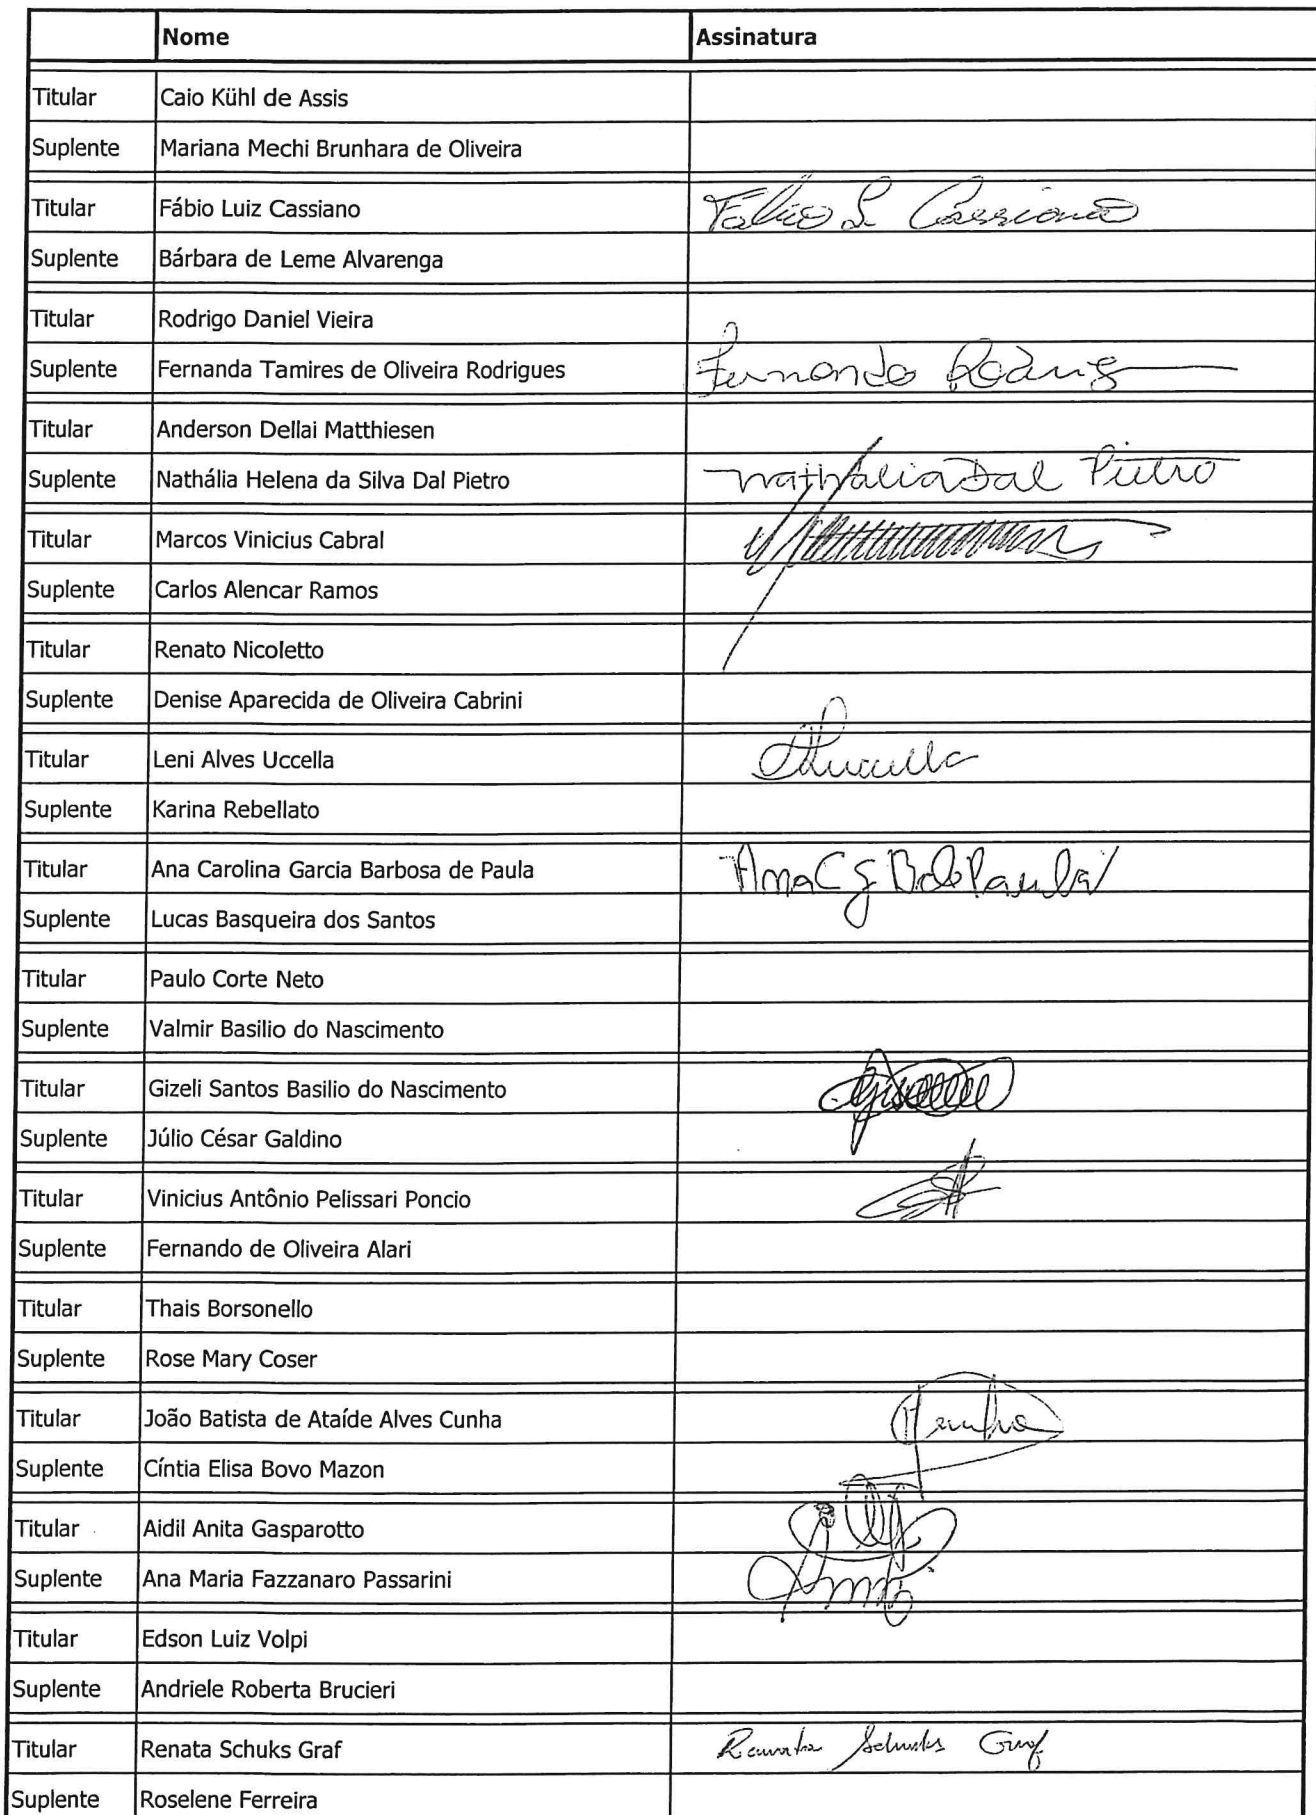 Nome Assinatura
Titular Caio Kühl de Assis
Suplente Mariana Mechi Brunhara de Oliveira
Titular Fábio Luiz Cassiano Fabio L Cassiano
Suplente Bárbara de Leme Alvarenga
Titular Rodrigo Daniel Vieira
Suplente Fernanda Tamires de Oliveira Rodrigues Fernanda
Titular Anderson Dellai Matthiesen
Suplente Nathália Helena da Silva Dal Pietro Nathalia Dal Pietro
Titular Marcos Vinicius Cabral
Suplente Carlos Alencar Ramos
Titular Renato Nicoletto
Suplente Denise Aparecida de Oliveira Cabrini
Titular Leni Alves Uccella
Suplente Karina Rebellato
Titular Ana Carolina Garcia Barbosa de Paula Ana C G B de Paula
Suplente Lucas Basqueira dos Santos
Titular Paulo Corte Neto
Suplente Valmir Basilio do Nascimento
Titular Gizeli Santos Basilio do Nascimento
Suplente Júlio César Galdino
Titular Vinicius Antônio Pelissari Poncio
Suplente Fernando de Oliveira Alari
Titular Thais Borsonello
Suplente Rose Mary Coser
Titular João Batista de Ataíde Alves Cunha
Suplente Cíntia Elisa Bovo Mazon
Titular Aidil Anita Gasparotto
Suplente Ana Maria Fazzanaro Passarini
Titular Edson Luiz Volpi
Suplente Andriele Roberta Brucieri
Titular Renata Schuks Graf Renata Schuks Graf
Suplente Roselene Ferreira